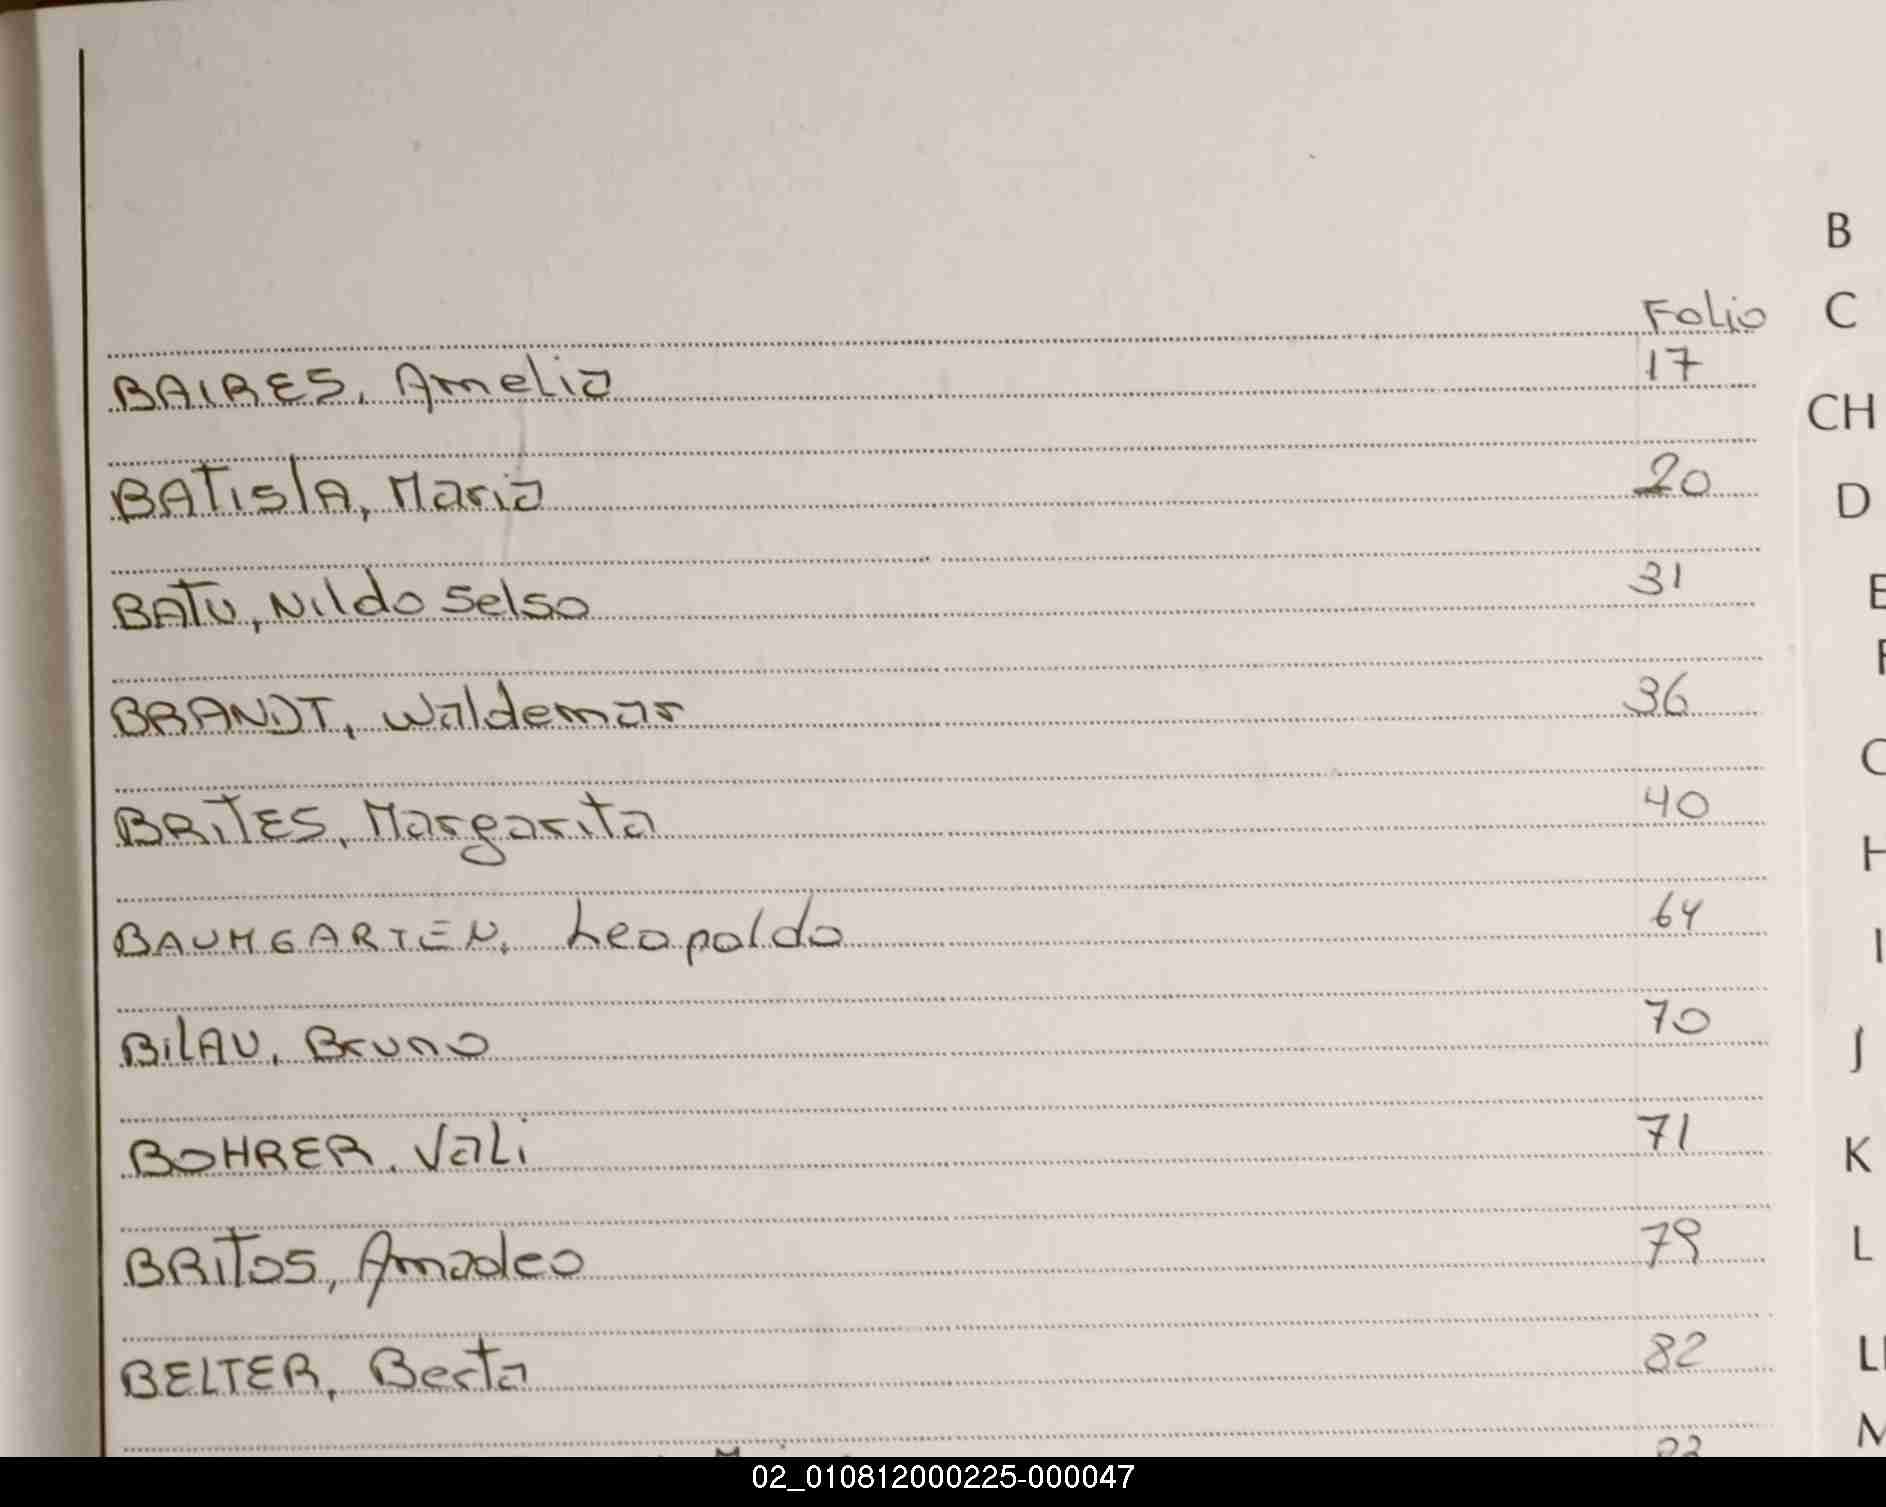 B
Folio C
BAIRES, Amelia 17
CH
BATISTA, Maria 20
D
BATU, Nildo Selso 31
BRANDT, Waldemar 36
BRITES, Margarita 40
H
BAUMGARTEN, Leopoldo 64
I
BILAU, Bruno 70
J
BOHRER, Vali 71
K
BRITOS, Amadeo 79
L
BELTER, Berta 82
02_010812000225-000047